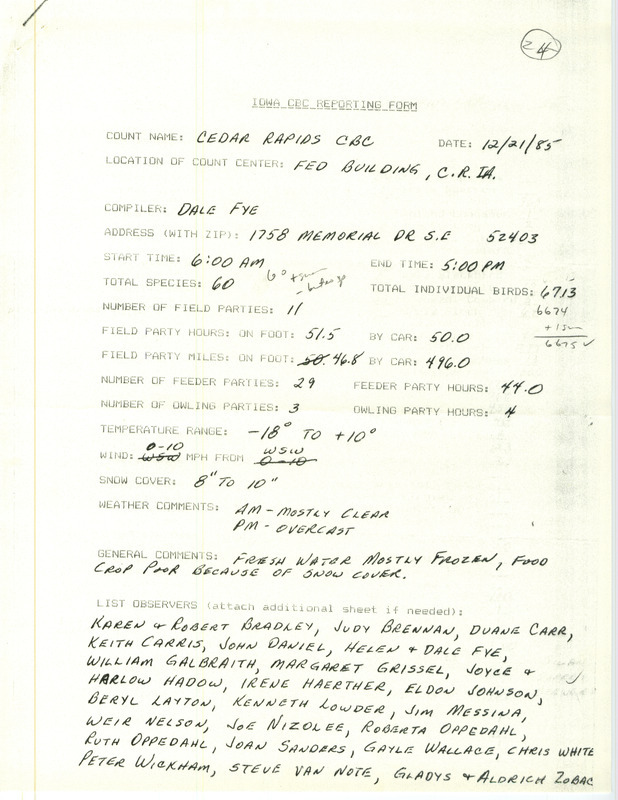 24
IOWA CBC REPORTING FORM
COUNT NAME: CEDAR RAPIDS CBC DATE: 12/21/85
LOCATION OF COUNT CENTER: FED BUILDING, C.R. IA.
COMPILER: DALE FYE
ADDRESS (WITH ZIP): 1758 MEMORIAL DR S.E 52403
START TIME: 6:00 AM END TIME: 5:00 PM
TOTAL SPECIES: 60 60 + TOTAL INDIVIDUAL BIRDS: 6713
6674
NUMBER OF FIELD PARTIES: 11
+1
6675 ✓
FIELD PARTY HOURS: ON FOOT: 51.5 BY CAR: 50.0
FIELD PARTY MILES: ON FOOT: 50. 46.8 BY CAR: 496.0
NUMBER OF FEEDER PARTIES: 29 FEEDER PARTY HOURS: 44.0
NUMBER OF OWLING PARTIES: 3 OWLING PARTY HOURS: 4
TEMPERATURE RANGE: -18° TO +10°
0-10 WSW
WIND: WSW MPH FROM 0-10
SNOW COVER: 8" TO 10"
WEATHER COMMENTS: AM - MOSTLY CLEAR
PM - OVERCAST
GENERAL COMMENTS: FRESH WATER MOSTLY FROZEN, FOOD
CROP POOR BECAUSE OF SNOW COVER.
LIST OBSERVERS (attach additional sheet if needed):
KAREN & ROBERT BRADLEY, JUDY BRENNAN, DUANE CARR,
KEITH CARRIS, JOHN DANIEL, HELEN & DALE FYE,
WILLIAM GALBRAITH, MARGARET GRISSEL, JOYCE &
HARLOW HADOW, IRENE HAERTHER, ELDON JOHNSON,
BERYL LAYTON, KENNETH LOWDER, JIM MESSINA,
WEIR NELSON, JOE NIZOLEE, ROBERTA OPPEDAHL,
RUTH OPPEDAHL, JOAN SANDERS, GAYLE WALLACE, CHRIS WHITE
PETER WICKHAM, STEVE VAN NOTE, GLADYS & ALDRICH ZOBAC